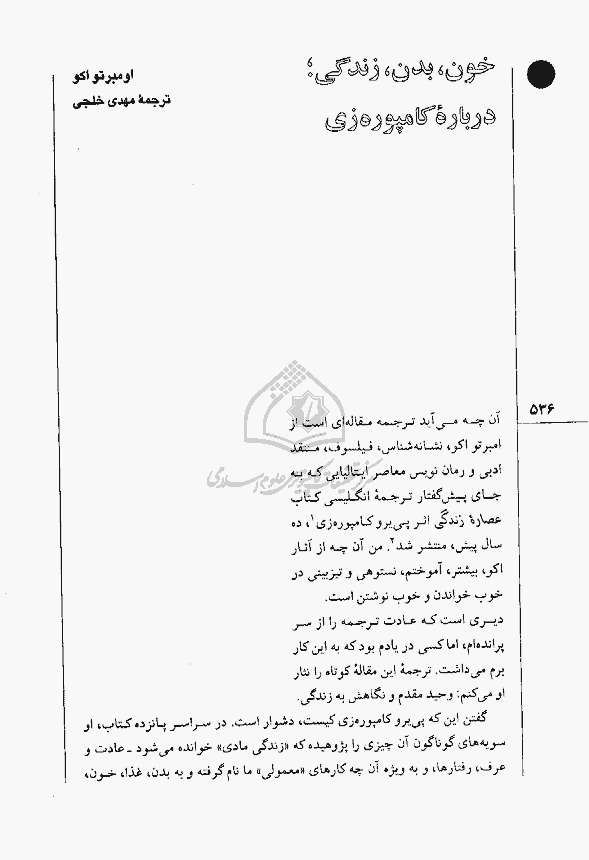 خون، بدن، زندگی؛
دربارهٔ کامپوره‌زی
اومبرتو اکو
ترجمهٔ مهدی خلجی
۵۳۶
آن چه می‌آید ترجمه مقاله‌ای است از
امبرتو اکو، نشانه‌شناس، فیلسوف، منتقد
ادبی و رمان نویس معاصر ایتالیایی که به
جای پیش‌گفتار ترجمهٔ انگلیسی کتاب
عصارهٔ زندگی اثر پی‌یرو کامپوره‌زی۱، ده
سال پیش، منتشر شد۲. من آن چه از آثار
اکو، بیشتر، آموختم، نستوهی و تیزبینی در
خوب خواندن و خوب نوشتن است.
دیری است که عادت ترجمه را از سر
پرانده‌ام، اما کسی در یادم بود که به این کار
برم می‌داشت. ترجمهٔ این مقالهٔ کوتاه را نثار
او می‌کنم: وحید مقدم و نگاهش به زندگی.
گفتن این که پی‌یرو کامپوره‌زی کیست، دشوار است. در سراسر پانزده کتاب، او
سویه‌های گوناگون آن چیزی را پژوهیده که «زندگی مادی» خوانده می‌شود ـ عادت و
عرف، رفتارها، و به ویژه آن چه کارهای «معمولی» ما نام گرفته و به بدن، غذا، خون،